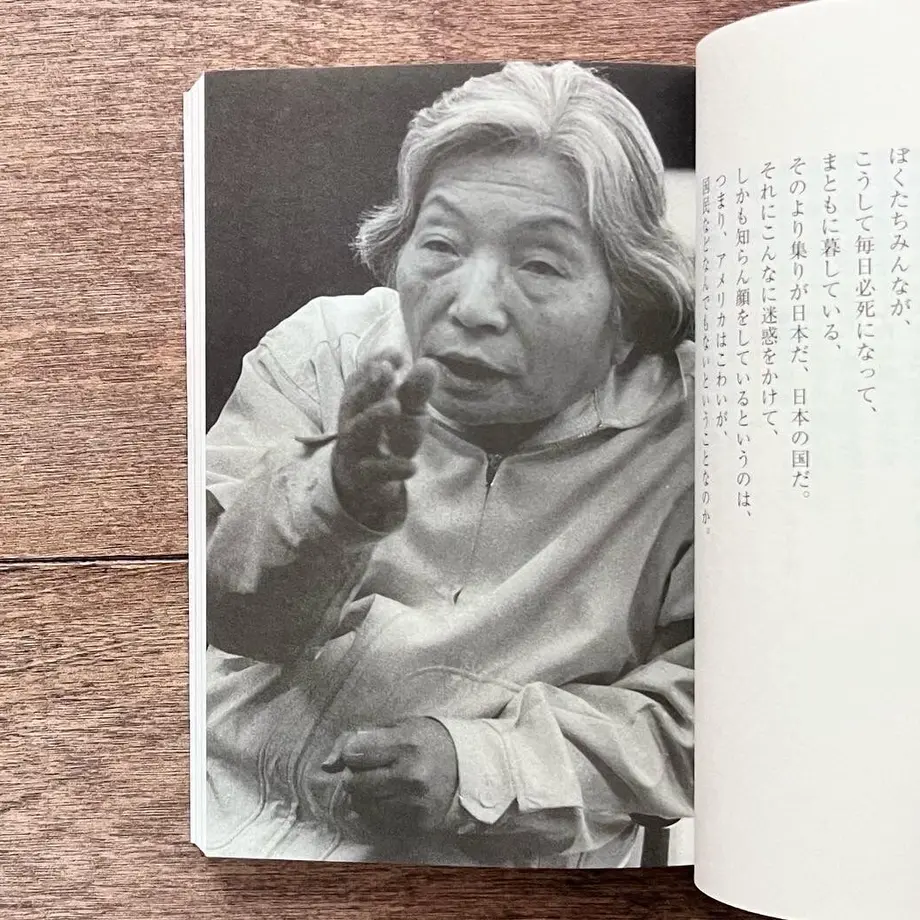 ぼくたちみんなが、
こうして毎日必死になって、
まともに暮している、
そのより集りが日本だ、日本の国だ。
それにこんなに迷惑をかけて、
しかも知らん顔をしているというのは、
つまり、アメリカはこわいが、
国民などなんでもないということなのか。